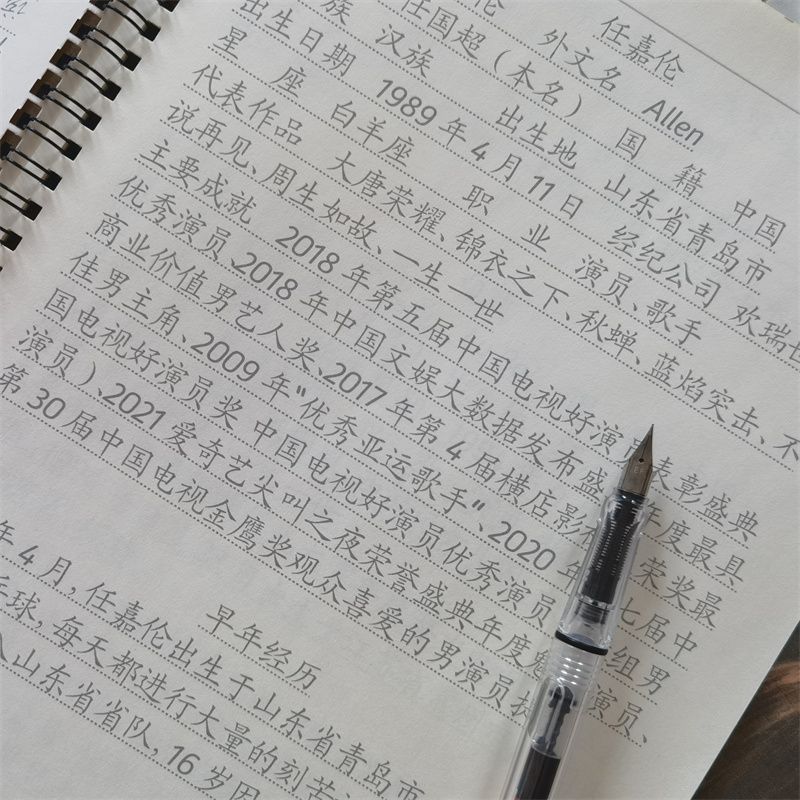 任嘉伦
伦 外文名 Allen
任国超（本名） 国 籍 中国
族 汉族 出生地 山东省青岛市
出生日期 1989年4月11日 经纪公司 欢瑞世
星 座 白羊座 职 业 演员、歌手
代表作品 大唐荣耀、锦衣之下、秋蝉、蓝焰突击、不
说再见、周生如故、一生一世
主要成就 2018年第五届中国电视好演员表彰盛典
优秀演员、2018年中国文娱大数据发布盛 年度最具
商业价值男艺人奖、2017年第4届横店影 荣奖最
佳男主角、2009年“优秀亚运歌手”、2020年 七届中
国电视好演员奖 中国电视好演员优秀演员 组男
演员）、2021爱奇艺尖叫之夜荣誉盛典年度魅 演员、
第30届中国电视金鹰奖观众喜爱的男演员
早年经历
年4月，任嘉伦出生于山东省青岛市
球，每天都进行大量的刻苦
入山东省省队，16岁因